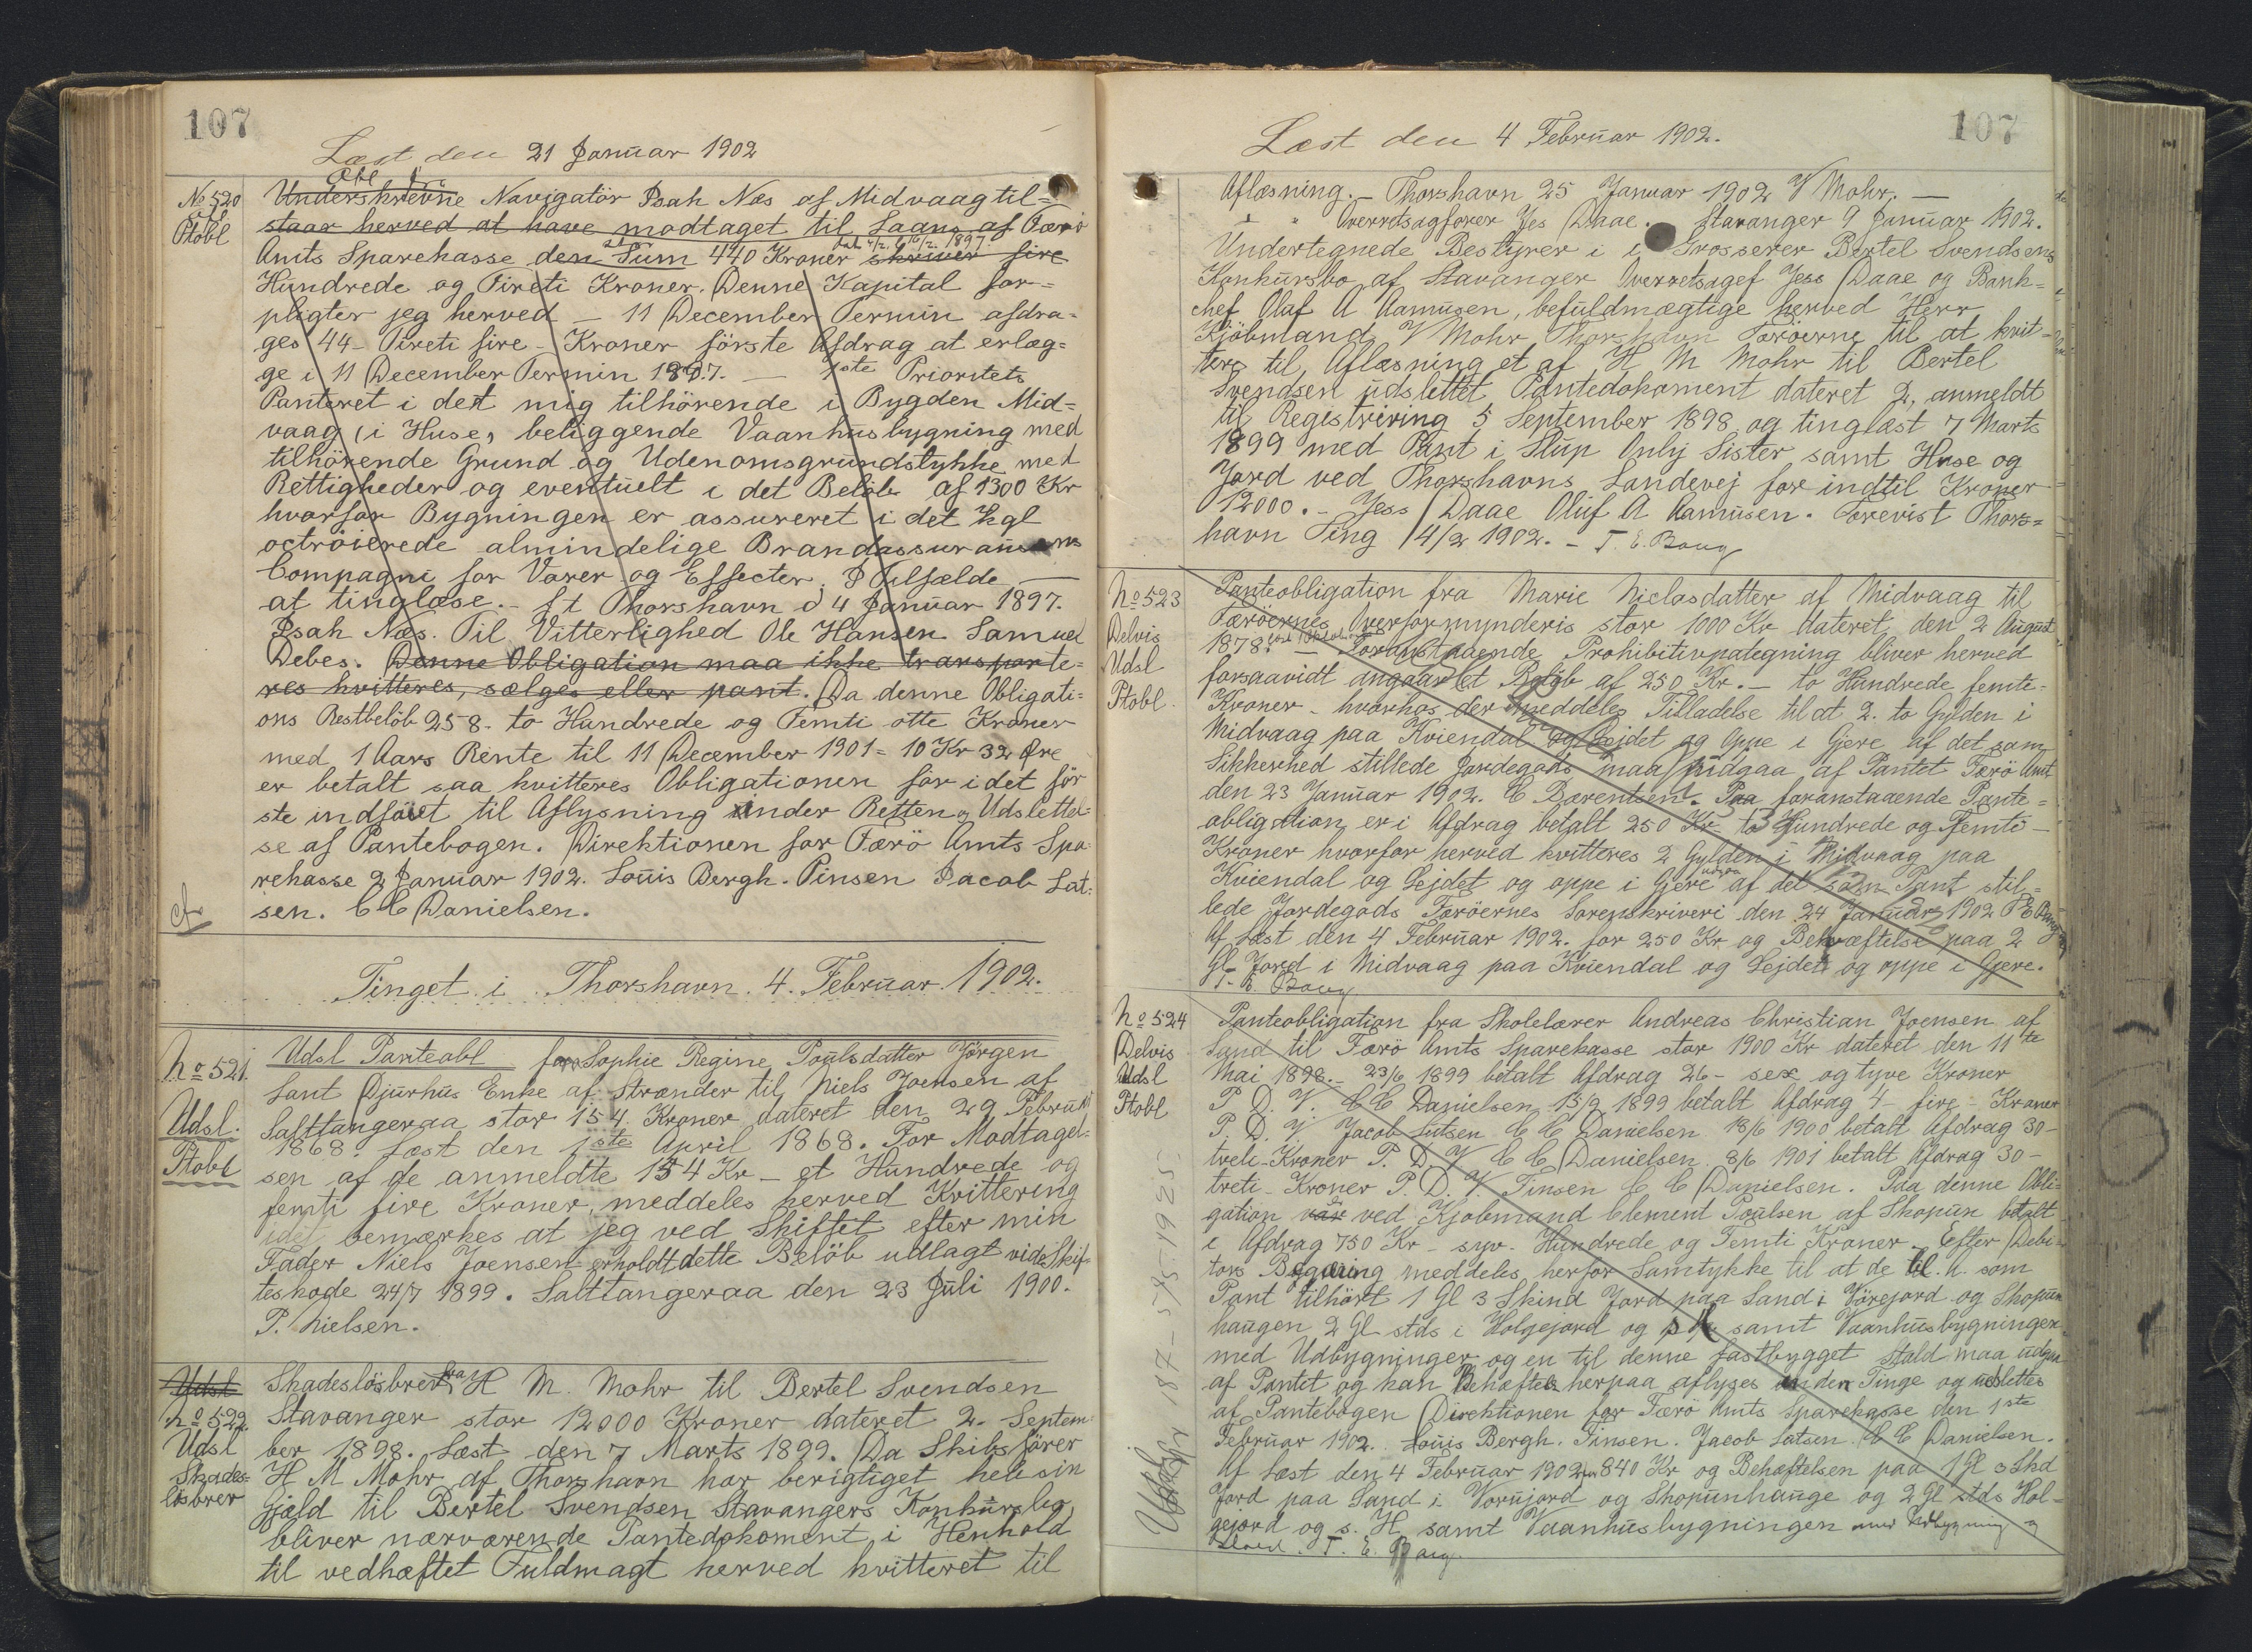 107
Læst den 21 Januar 1902
Obl
No 520
Udsl
Ptobl
Underskrevne Navigatör Isak Næs af Midvaag til=
staar herved at have modtaget til Laans af Færö
Amts Sparekasse den Sum 440 Kroner skriver fire
Hundrede og Fireti Kroner. Denne Kapital for=
pligter jeg herved — 11 December Termin afdra=
ges 44 - Fireti fire - Kroner förste Afdrag at erlæg=
ge i 11 December Termin 1897. — 1ste Prioritets
Panteret i det mig tilhörende i Bygden Mid=
vaag (i Huse) beliggende Vaanhusbygning med
tilhörende Grund og Udenomsgrundstykke med
Rettigheder og eventuelt i det Belöb af 1300 Kr
hvorfor Bygningen er assureret i det kgl
octroierede almindelige Brandassurance
Compagni for Varer og Effecter. I Tilfælde —
at tinglæse. - p.t Thorshavn d 4 Januar 1897.
Isak Næs. Til Vitterlighed Ole Hansen Samuel
Debes. Denne Obligation maa ikke transporte=
res kvitteres, sælges eller pant. Da denne Obligati=
ons Restbelöb 258 - to Hundrede og Femti otte Kroner
med 1 Aars Rente til 11 December 1901 = 10 Kr 32 Øre
er betalt saa kvitteres Obligationen for i det för
ste indfört til Aflysning under Retten og Udslettel=
se af Pantebogen. Direktionen for Færö Amts Spa
rekasse 2 Januar 1902. Louis Bergh. Tinsen Jacob Lut=
sen. C C Danielsen.
Tinget i Thorshavn. 4. Februar. 1902.
No 521.
Udsl.
Ptobl
Udsl Panteobl fra Sophie Regine Poulsdatter Jörgen
Sant Djurhus Enke af Strænder til Niels Joensen af
Salttangeraa stor 154 Kroner dateret den 29 Februar
1868. Læst den 1ste April 1868. For Modtagel=
sen af de anmeldte 154 Kr - et Hundrede og
femti fire Kroner, meddeles herved Kvittering
idet bemærkes at jeg ved Skiftet efter min
Fader Niels Joensen erholdt dette Belöb udlagt vide Skif=
teskode 24/7 1899. Salttangeraa den 23 Juli 1900.
P. Nielsen.
Udsl
No 522
Udsl
Skades=
lösbrev
Skadeslösbrev fra H M. Mohr til Bertel Svendsen
Stavanger stor 12000 Kroner dateret 2. Septem
ber 1898. Læst den 7 Marts 1899. Da Skibsförer
H M Mohr af Thorshavn har berigtiget hele sin
Gjæld til Bertel Svendsen Stavangers Konkursbo,
bliver nærværende Pantedokoment i Henhold
til vedhæftet Fuldmagt herved kvitteret til
107
Læst den 4 Februar 1902.
Aflæsning. - Thorshavn 25 Januar 1902 V Mohr. —
Overretsagförer Jes Daae. Stavanger 9 Januar 1902.
Undertegnede Bestyrer i Grosserer Bertel Svendsens
Konkursbo af Stavanger Overretsagf Jess Daae og Bank=
chef Oluf A Aamusen, befuldmægtige herved Herr
Kjöbmand V Mohr Thorshavn Færöerne til at kvit=
tere til Aflæsning et af H M Mohr til Bertel
Svendsen udslettet Pantedokoment dateret 2, anmeldt
til Registrering 5 September 1898 og tinglæst 7 Marts
1899 med Pant i Slup Only Sister samt Huse og
Jord ved Thorshavns Landevej for indtil Kroner
12000. - Jess Daae Oluf A Aamusen. Forevist Thors=
havn Ting 4/2 1902. - T. E. Bang
No 523
Delvis
Udsl
Ptobl.
Panteobligation fra Marie Niclasdatter af Midvaag til
Færöernes Overformynderis stor 1000 Kr dateret den 2 August
1878. — Foranstaaende Prohibitivpategning bliver herved
forsaavidt angaar et Belöb af 250 Kr. - to Hundrede femte=
Kroner - hvorhos der meddeles Tilladelse til at 2. to Gylden i
Midvaag paa Kviendal og Lejdet og Oppe i Gjere af det som
Sikkerhed stillede Jordegods maa udgaa af Pantet Færö Amt
den 23 Januar 1902. C Bærentsen. Paa foranstaaende Pante=
obligation er i Afdrag betalt 250 Kr to Hundrede og Femti -
Kroner hvorfor herved kvitteres 2 Gylden i Midvaag paa
Kviendal og Lejdet og oppe i Gjere af det som Pant stil=
lede Jordegods Færöernes Sorenskriveri den 24 Januar 1902 T E Bang
Af Læst den 4 Februar 1902. for 250 Kr og Behæftelse paa 2
Gl. Jord i Midvaag paa Kviendal og Lejdet og oppe i Gjere.
T. E Bang
No 524
Delvis
Udsl
Ptobl
Panteobligation fra Skolelærer Andreas Christian Joensen af
Sand til Færö Amts Sparekasse stor 1900 Kr dateret den 11te
Mai 1898. - 23/6 1899 betalt Afdrag 26 - sex og tyve Kroner
P. D. V. C C Danielsen 15/9 1899 betalt Afdrag 4 - fire - Kroner
P. D. V Jacob Lutsen C C Danielsen 18/6 1900 betalt Afdrag 30 -
treti - Kroner P. D. V C C Danielsen. 8/6 1901 betalt Afdrag 30 -
treti - Kroner P. D. V. Tinsen C C Danielsen. Paa denne Obli=
gation var ved Kjobmand Clement Poulsen af Skopun betalt
i Afdrag 750 Kr - syv - Hundrede og Femti Kroner. Efter Debi=
tors Begæring meddeles herfor Samtykke til at de til. A. som
Pant tilhört 1 Gl 3 Skind Jord paa Sand i Vörejord og Skopun
haugen 2 Gl stds i Holgejord og samt Vaanhusbygningen
med Udbygninger og en til denne fastbygget stald maa udgaa
af Pantet og kan Behæftels herpaa aflyses inden Tinge og udslettes
af Pantebogen Direktionen for Færö Amts Sparekasse den 1ste
Februar 1902. Louis Bergh. Tinsen. Jacob Lutsen. C C Danielsen.
Af Læst den 4 Februar 1902 840 Kr og Behæftelsen paa 1 Gl 3 Skd
Jord paa Sand i Vorujord og Skopunhauge og 2 Gl stds Hol=
gejord og s. H. samt Vaanhusbygningen med Udbygning og
Stald. T. E. Bang.